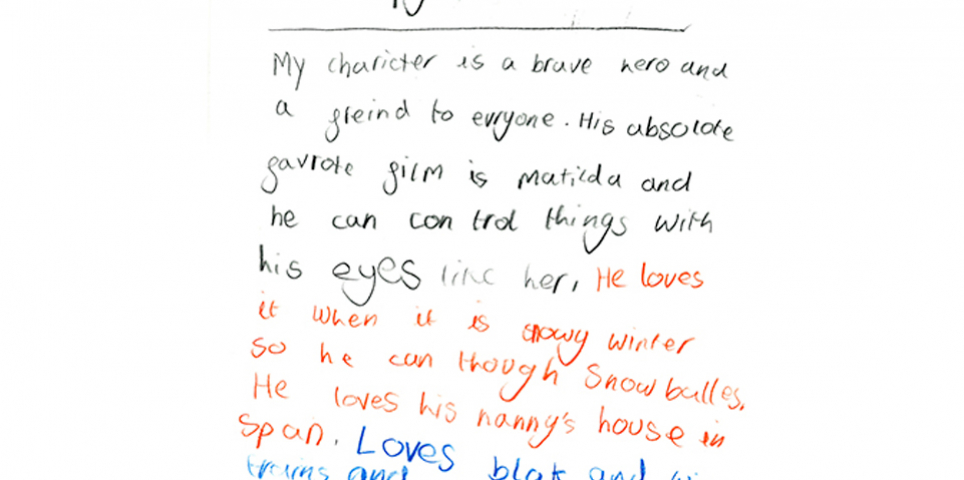 My charicter is a brave hero and
a freind to evryone. His absolote
favrote film is matilda and
he can control things with
his eyes like her, He loves
it when it is snowy winter
so he can though snowballes.
He loves his nanny's house in
Span. Loves blak and
trains and